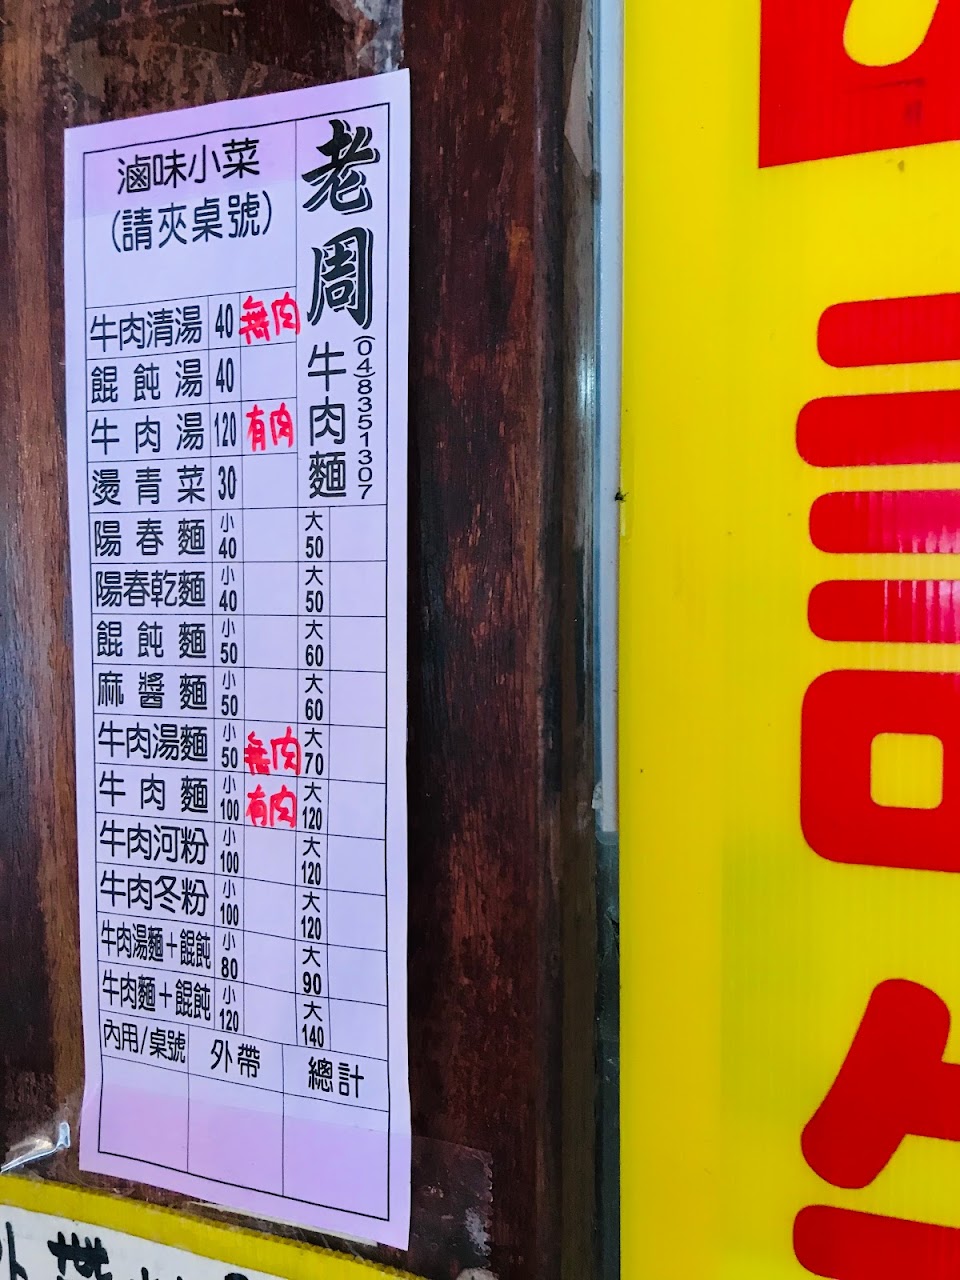 老周牛肉麵
(04)8351307
滷味小菜
(請夾桌號)
牛肉清湯 40 無肉
餛飩湯 40
牛肉湯 120 有肉
燙青菜 30
陽春麵 小40 大50
陽春乾麵 小40 大50
餛飩麵 小50 大60
麻醬麵 小50 大60
牛肉湯麵 小50 無肉 大70
牛肉麵 小100 有肉 大120
牛肉河粉 小100 大120
牛肉冬粉 小100 大120
牛肉湯麵+餛飩 小80 大90
牛肉麵+餛飩 小120 大140
內用/桌號 外帶 總計